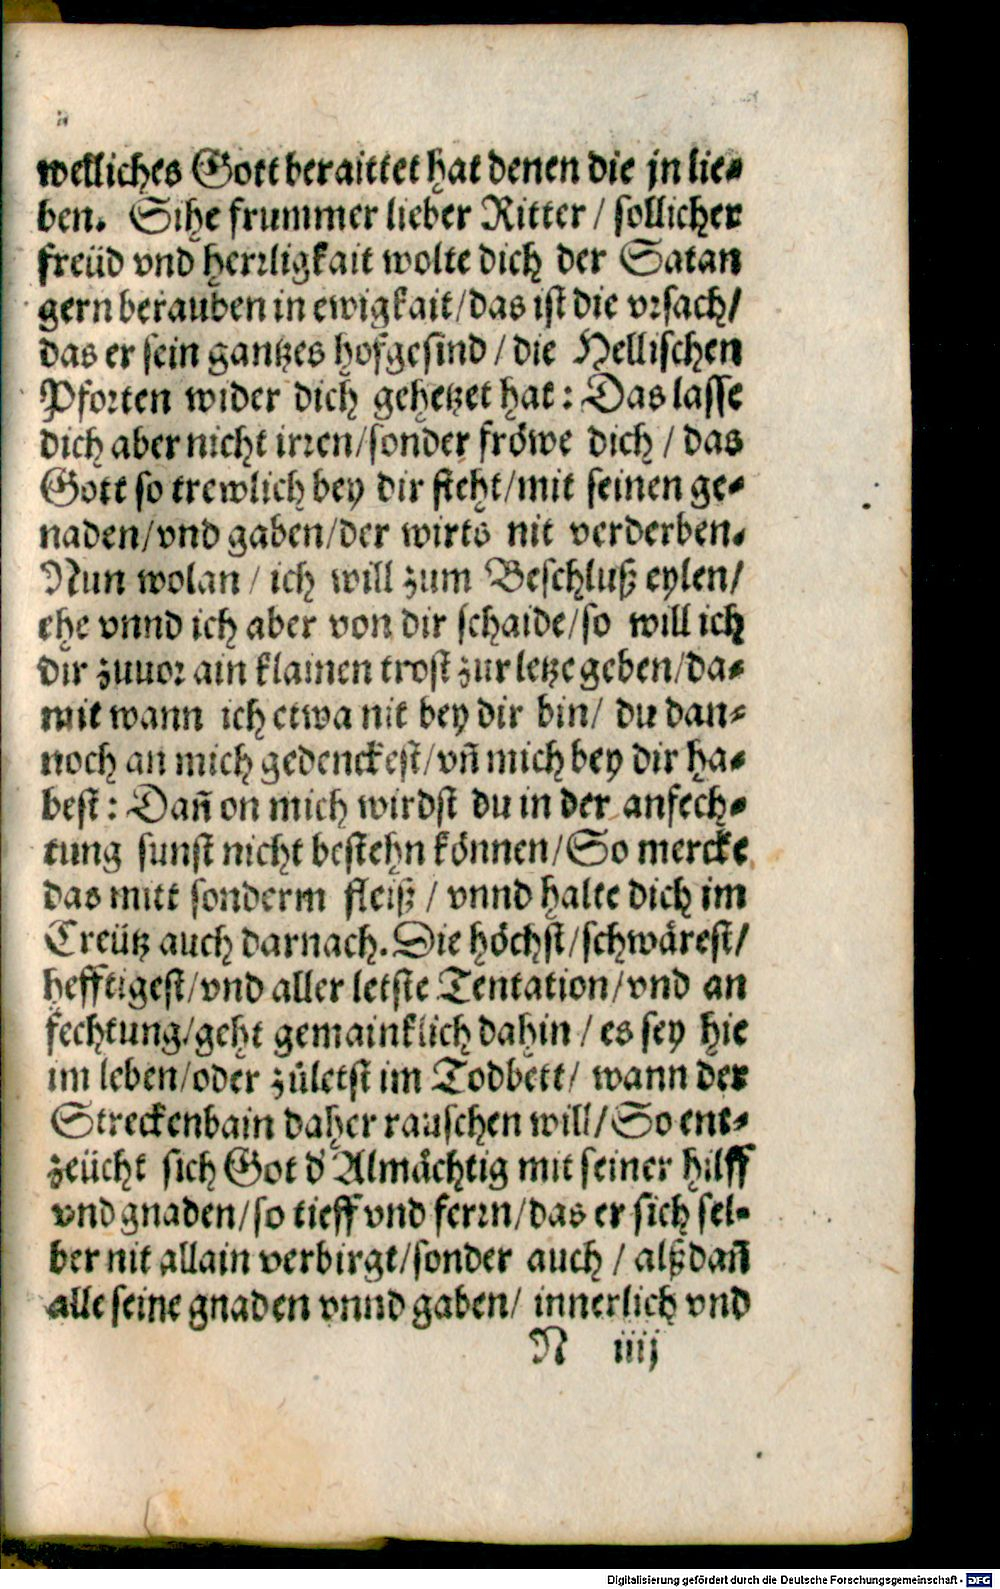 welliches Gott beraittet hat denen die jn lie-
ben. Sihe frummer lieber Ritter / sollicher
freüd vnd herꝛligkait wolte dich der Satan
gern berauben in ewigkait/das ist die vꝛsach/
das er sein gantzes hofgesind / die Hellischen
Pfoꝛten wider dich gehetzet hat: Das lasse
dich aber nicht irꝛen/sonder fröwe dich / das
Gott so trewlich bey dir steht/mit seinen ge-
naden/vnd gaben/der wirts nit verderben.
Nun wolan / ich will zum Beschluß eylen/
ehe vnnd ich aber von dir schaide/so will ich
dir zuuoꝛ ain klainen trost zur letze geben/da-
mit wann ich etwa nit bey dir bin/ du dan-
noch an mich gedenckest/vñ mich bey dir ha-
best: Dañ on mich wirdst du in der anfech-
tung sunst nicht bestehn können/So mercke
das mitt sonderm fleiß / vnnd halte dich im
Creütz auch darnach. Die höchst/schwärest/
hefftigest/vnd aller letste Tentation/vnd an
fechtung/geht gemainklich dahin / es sey hie
im leben/oder zůletst im Todbett/ wann der
Streckenbain daher rauschen will/So ent-
zeücht sich Got d' Almächtig mit seiner hilff
vnd gnaden/so tieff vnd ferꝛn/das er sich sel-
ber nit allain verbirgt/sonder auch / alßdañ
alle seine gnaden vnnd gaben/ innerlich vnd
N iiij
Digitalisierung gefördert durch die Deutsche Forschungsgemeinschaft - DFG